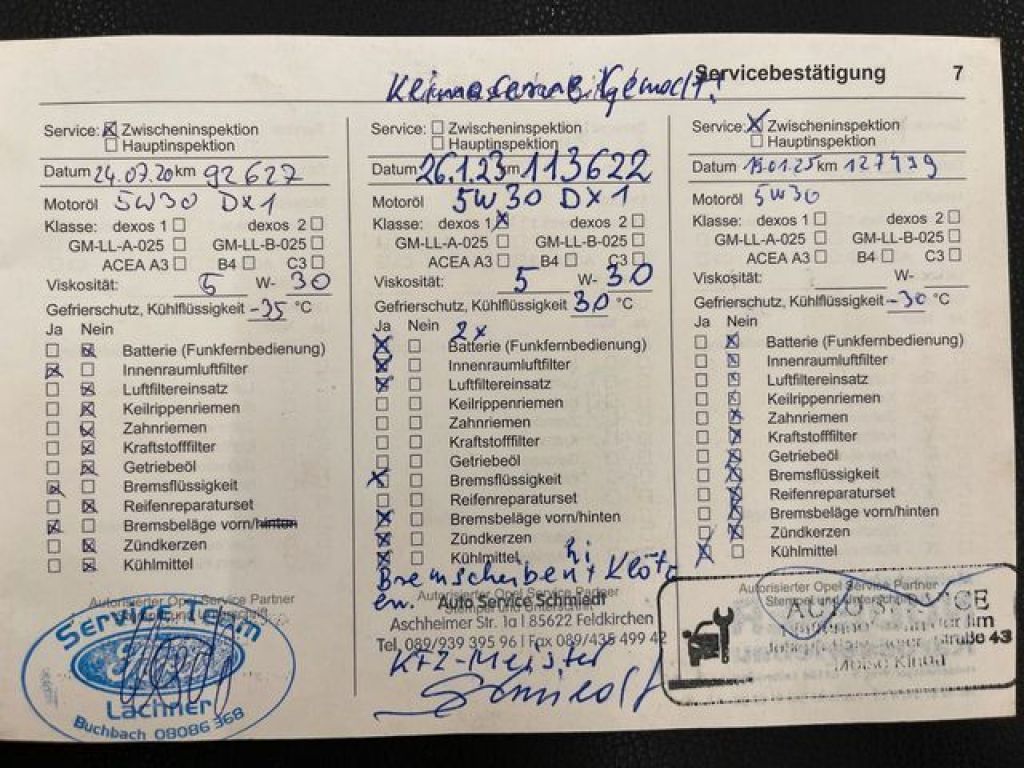 Servicebestätigung 7
Service: Zwischeninspektion
Hauptinspektion
Datum 24.07.20 km 92627
Motoröl 5W30 DX1
Klasse: dexos 1 dexos 2
GM-LL-A-025 GM-LL-B-025
ACEA A3 B4 C3
Viskosität: 5 W- 30
Gefrierschutz, Kühlflüssigkeit -35 °C
Ja Nein
Batterie (Funkfernbedienung)
Innenraumluftfilter
Luftfiltereinsatz
Keilrippenriemen
Zahnriemen
Kraftstofffilter
Getriebeöl
Bremsflüssigkeit
Reifenreparaturset
Bremsbeläge vorn/hinten
Zündkerzen
Kühlmittel
Autorisierter Opel Service Partner
Service Team
Lachner
Buchbach 08086 368
Service: Zwischeninspektion
Hauptinspektion
Datum 26.1.23 km 113622
Motoröl 5W30 DX1
Klasse: dexos 1 dexos 2
GM-LL-A-025 GM-LL-B-025
ACEA A3 B4 C3
Viskosität: 5 W- 30
Gefrierschutz, Kühlflüssigkeit 30 °C
Ja Nein 2x
Batterie (Funkfernbedienung)
Innenraumluftfilter
Luftfiltereinsatz
Keilrippenriemen
Zahnriemen
Kraftstofffilter
Getriebeöl
Bremsflüssigkeit
Reifenreparaturset
Bremsbeläge vorn/hinten
Zündkerzen
Kühlmittel hi
Autorisierter Opel Service Partner
Auto Service Schmiedt
Aschheimer Str. 1a | 85622 Feldkirchen
Tel. 089/939 395 96 | Fax 089/435 499 42
KFZ-Meister
Service: Zwischeninspektion
Hauptinspektion
Datum km 127479
Motoröl 5W30
Klasse: dexos 1 dexos 2
GM-LL-A-025 GM-LL-B-025
ACEA A3 B4 C3
Viskosität: W-
Gefrierschutz, Kühlflüssigkeit -30 °C
Ja Nein
Batterie (Funkfernbedienung)
Innenraumluftfilter
Luftfiltereinsatz
Keilrippenriemen
Zahnriemen
Kraftstofffilter
Getriebeöl
Bremsflüssigkeit
Reifenreparaturset
Bremsbeläge vorn/hinten
Zündkerzen
Kühlmittel
Autorisierter Opel Service Partner